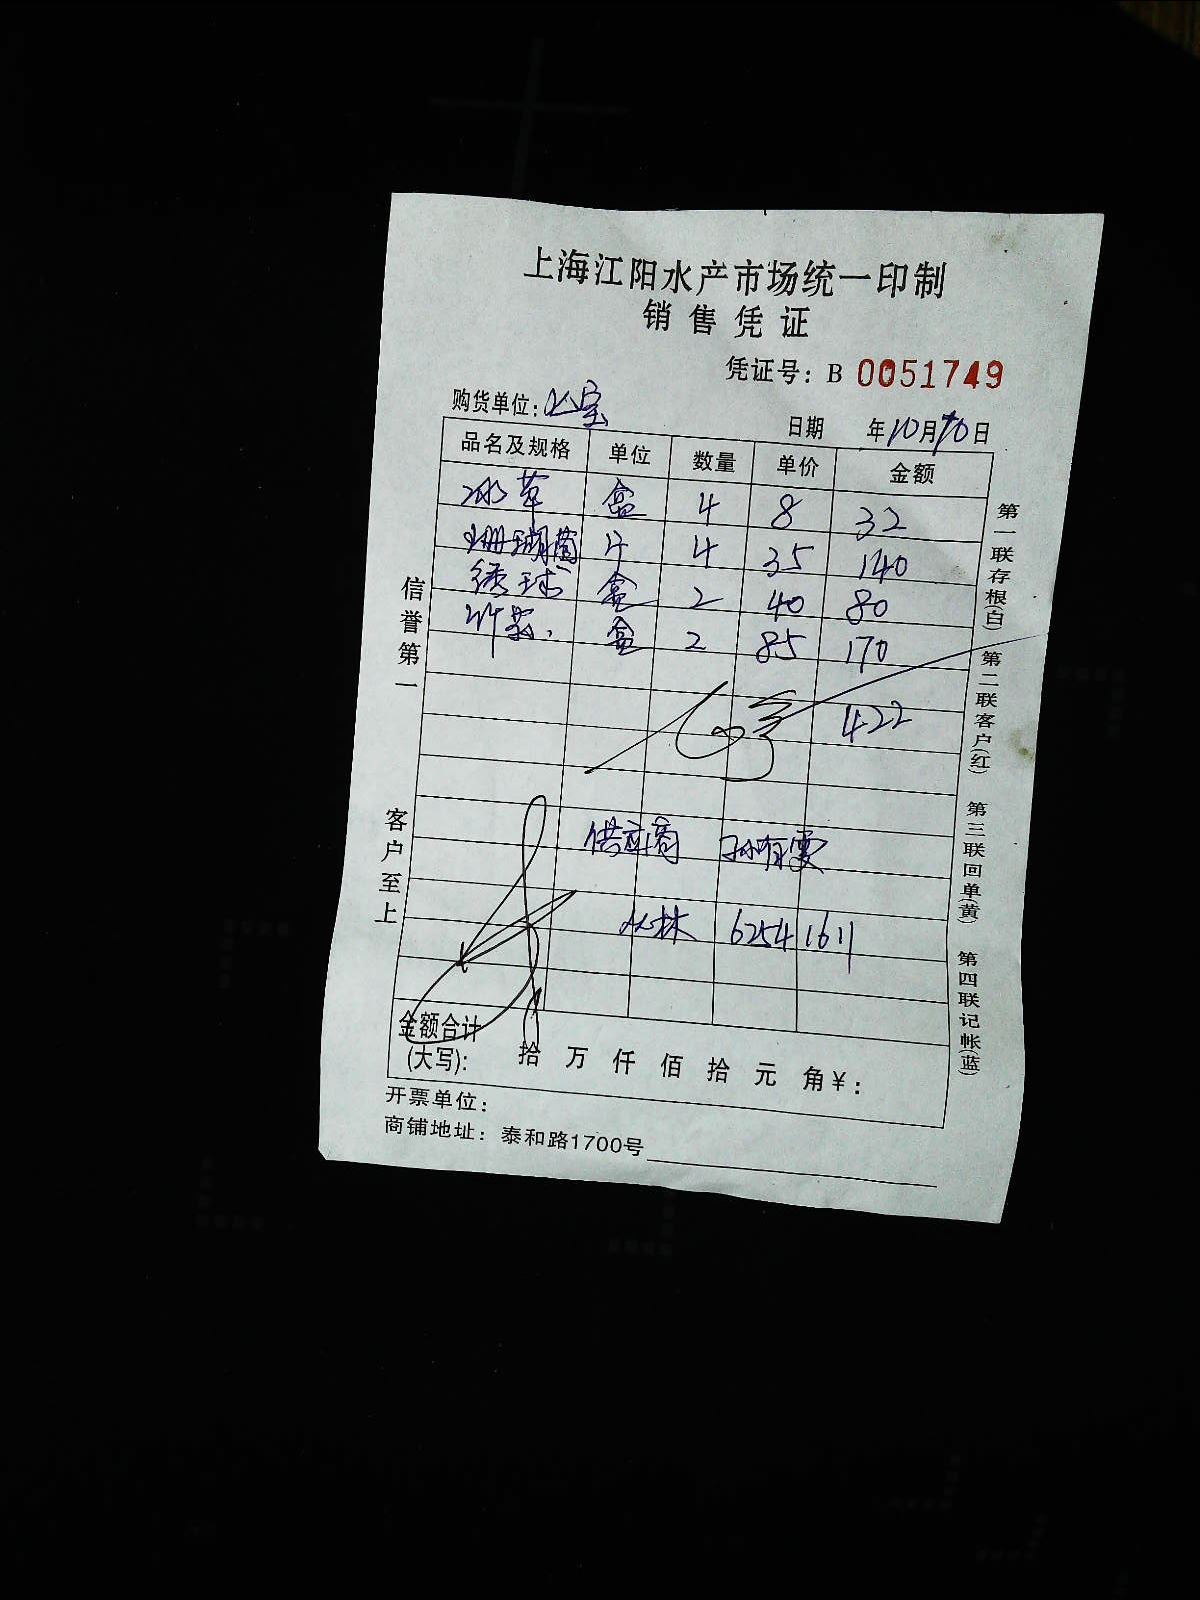 上海江阳水产市场统一印制
销售凭证
凭证号：B 0051749
购货单位： 日期 年10月10日
品名及规格 单位 数量 单价 金额
冰草 盒 4 8 32
珊瑚菌 斤 4 35 140
绣球 盒 2 40 80
竹荪. 盒 2 85 170
422
供应商 孙有雯
丛林 6254 1611
金额合计
(大写): 拾 万 仟 佰 拾 元 角¥：
开票单位：
商铺地址：泰和路1700号
信誉第一 客户至上
第一联存根(白) 第二联客户(红) 第三联回单(黄) 第四联记帐(蓝)